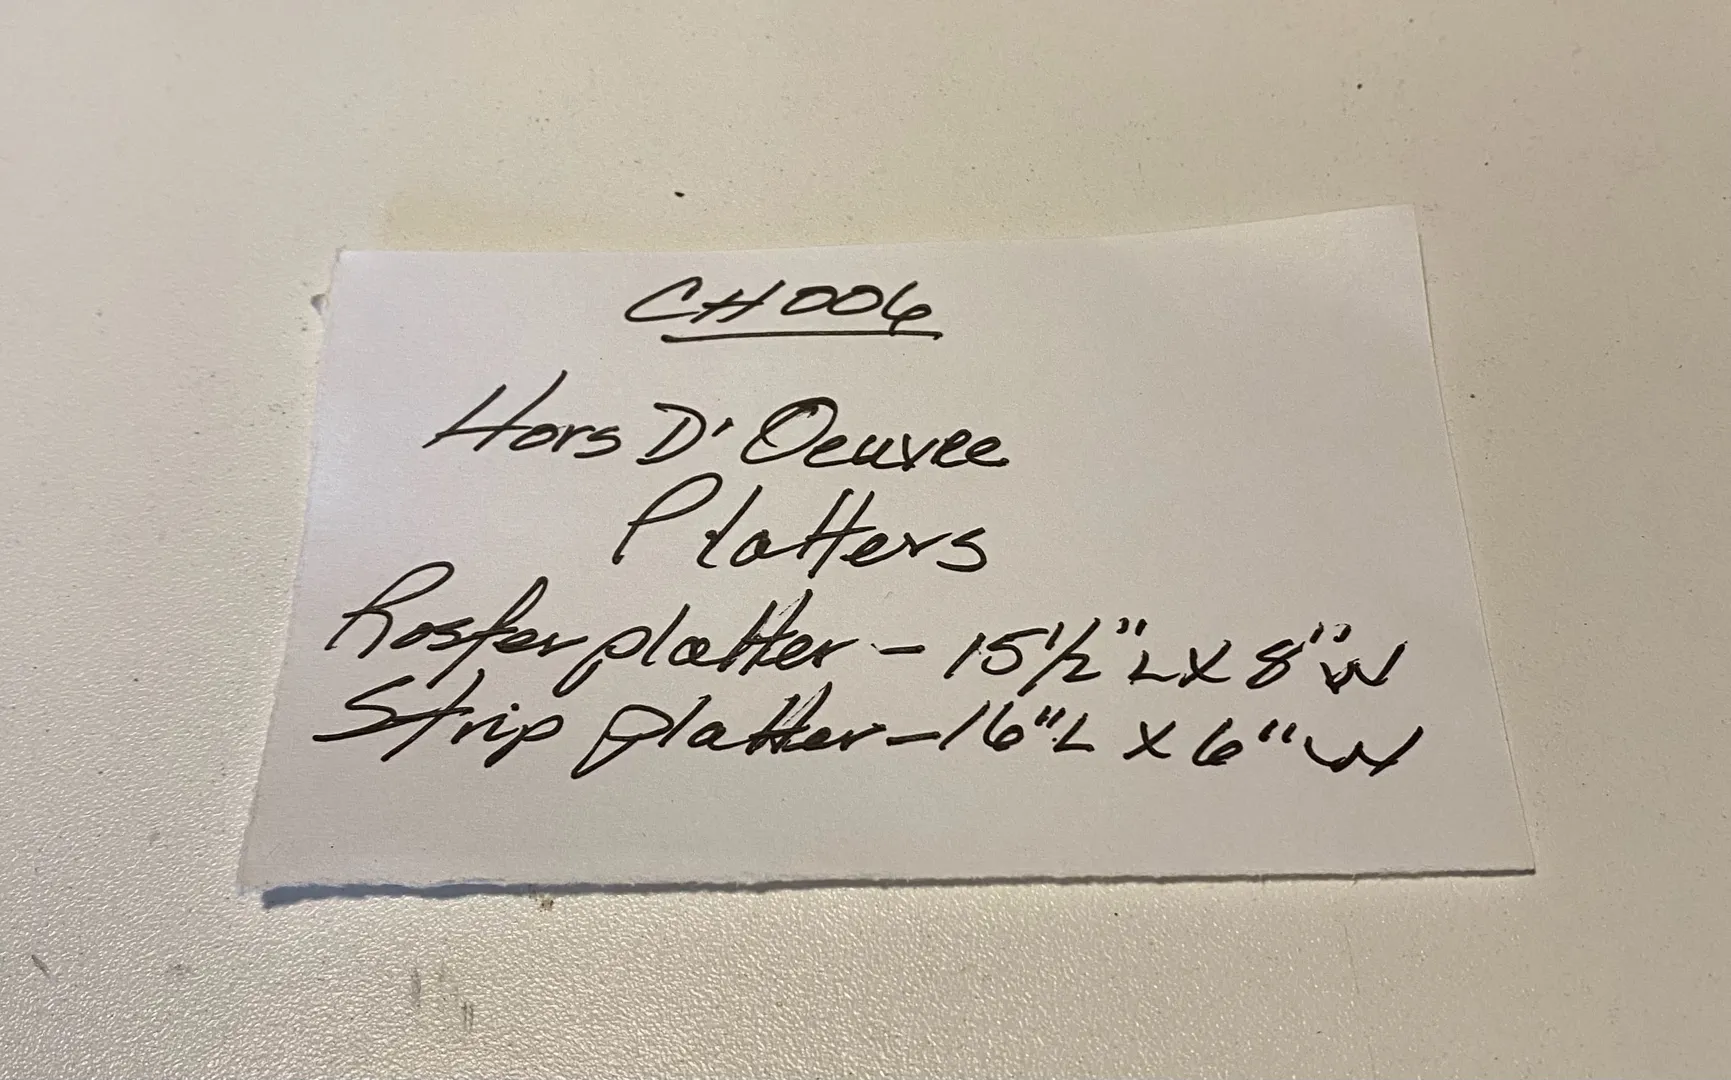 CH006
Hors D'Oeuvre
Platters
Roster platter - 15 1/2" L X 8" W
Strip platter - 16" L X 6" W